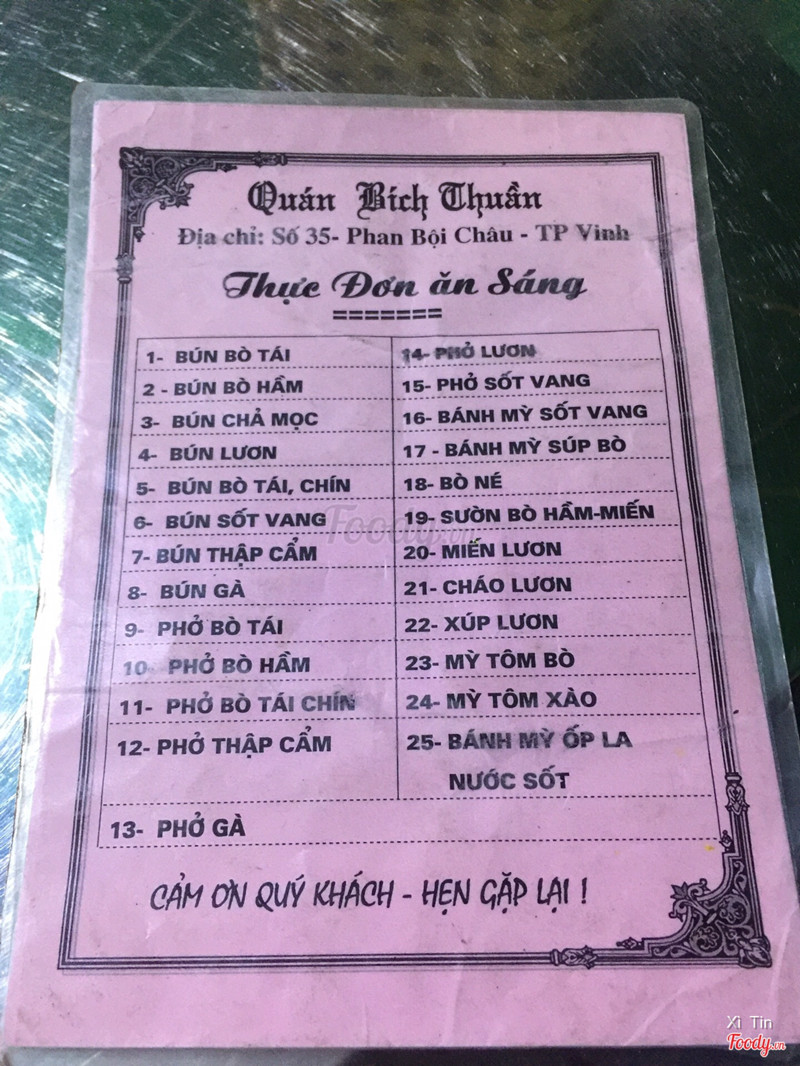 Quán Bích Thuần
Địa chỉ: Số 35- Phan Bội Châu - TP Vinh
Thực Đơn ăn Sáng
=======
1- BÚN BÒ TÁI
2 - BÚN BÒ HẦM
3- BÚN CHẢ MỌC
4- BÚN LƯƠN
5- BÚN BÒ TÁI, CHÍN
6- BÚN SỐT VANG
7- BÚN THẬP CẨM
8- BÚN GÀ
9- PHỞ BÒ TÁI
10- PHỞ BÒ HẦM
11- PHỞ BÒ TÁI CHÍN
12- PHỞ THẬP CẨM
13- PHỞ GÀ
14- PHỞ LƯƠN
15- PHỞ SỐT VANG
16- BÁNH MỲ SỐT VANG
17 - BÁNH MỲ SÚP BÒ
18- BÒ NÉ
19- SƯỜN BÒ HẦM-MIẾN
20- MIẾN LƯƠN
21- CHÁO LƯƠN
22- XÚP LƯƠN
23- MỲ TÔM BÒ
24- MỲ TÔM XÀO
25- BÁNH MỲ ỐP LA
NƯỚC SỐT
CẢM ƠN QUÝ KHÁCH - HẸN GẶP LẠI !
Foody.vn
Xi Tin
Foody.vn